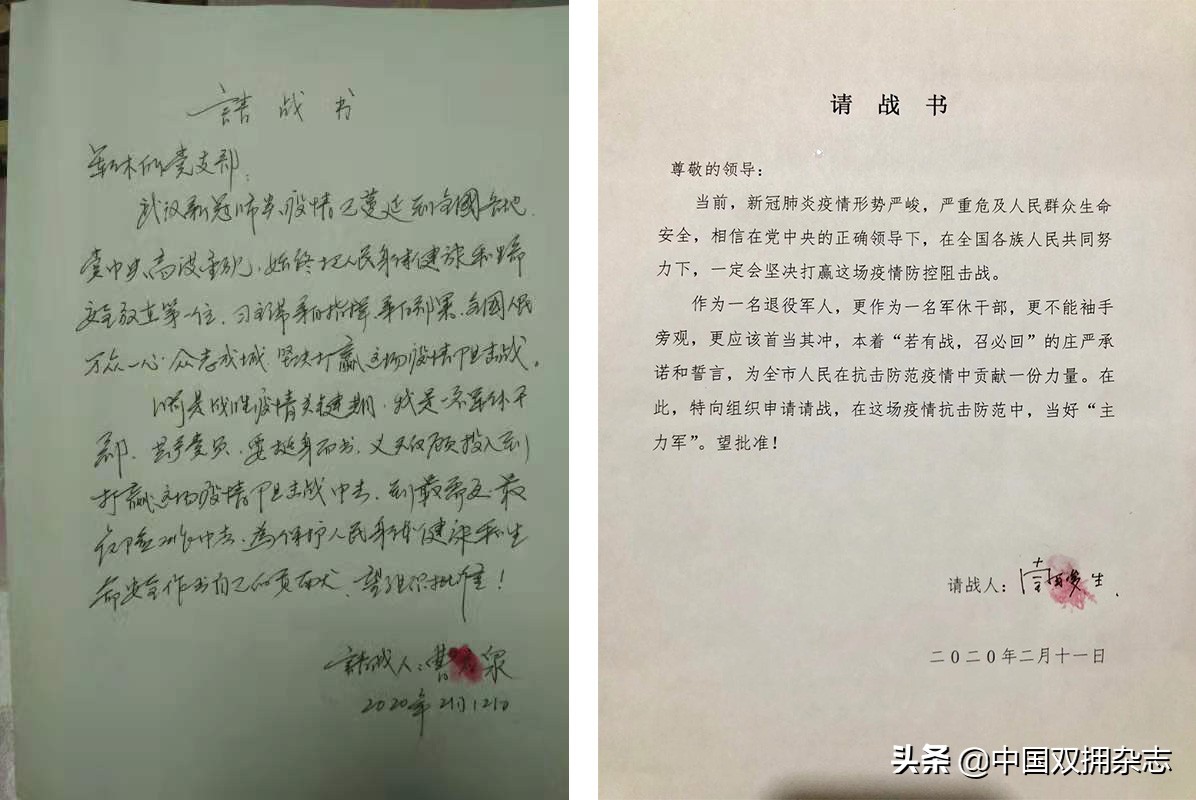 請战书
军休所党支部:
武汉新冠肺炎疫情已蔓延到全國各地.
党中央高度重视,始终把人民身体健康和
安全放在第一位.习主席亲自指挥,亲自部署.全國人民
万众一心.众志成城.坚决打赢这场疫情阻击战。
目前是战胜疫情关键期.我是一名军休干
部.共产党员.要挺身而出.义无反顾投入到
打赢这场疫情阻击战中去.到最需要.最
危险工作中去.为保护人民身体健康和生
命安全作出自己的贡献.望组织批准!
請战人:曹 泉
2020年2月12日
请战书
尊敬的领导:
当前,新冠肺炎疫情形势严峻,严重危及人民群众生命
安全,相信在党中央的正确领导下,在全国各族人民共同努
力下,一定会坚决打赢这场疫情防控阻击战。
作为一名退役军人,更作为一名军休干部,更不能袖手
旁观,更应该首当其冲,本着“若有战,召必回”的庄严承
诺和誓言,为全市人民在抗击防范疫情中贡献一份力量。在
此,特向组织申请请战,在这场疫情抗击防范中,当好“主
力军”。望批准!
请战人: 生
二〇二〇年二月十一日
头条 @中国双拥杂志